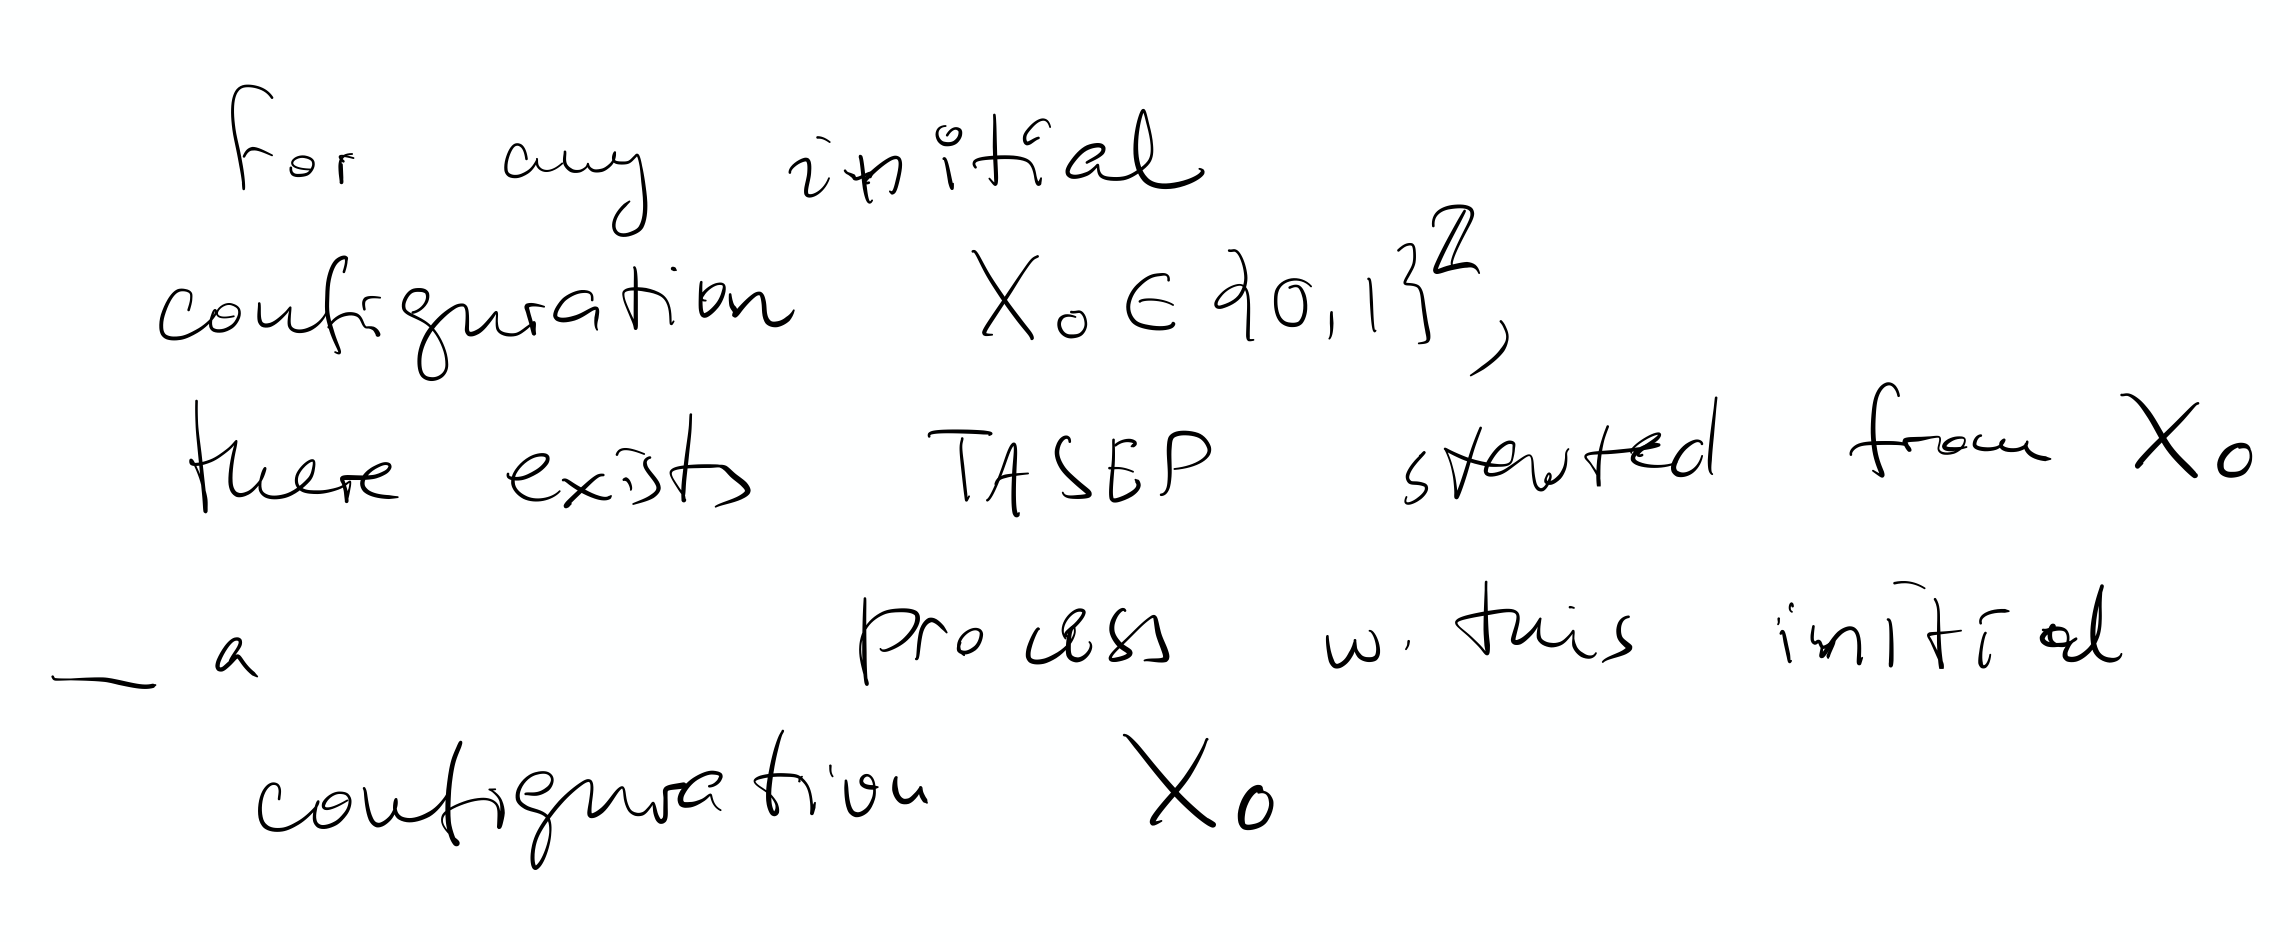 For any initial
configuration X₀ ∈ {0,1}^ℤ,
there exists TASEP started from X₀
— a process w. this initial
configuration X₀